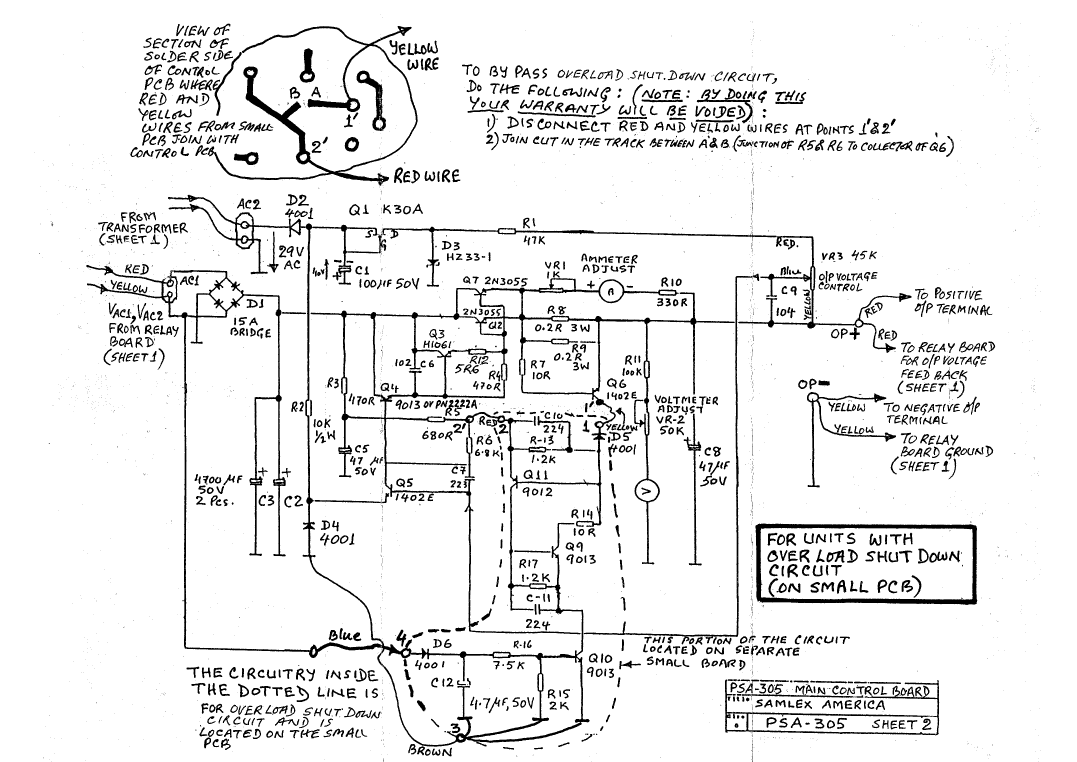 VIEW OF
SECTION OF
SOLDER SIDE
OF CONTROL
PCB WHERE
RED AND
YELLOW
WIRES FROM SMALL
PCB JOIN WITH
CONTROL PCB
B A
1'
2'
YELLOW
WIRE
RED WIRE
TO BY PASS OVERLOAD SHUT.DOWN CIRCUIT,
DO THE FOLLOWING : (NOTE: BY DOING THIS
YOUR WARRANTY WILL BE VOIDED) :
1) DISCONNECT RED AND YELLOW WIRES AT POINTS 1'& 2'
2) JOIN CUT IN THE TRACK BETWEEN A & B (JUNCTION OF R5 & R6 TO COLLECTOR OF Q6)
FROM
TRANSFORMER
(SHEET 1)
AC2
D2
4001
29V
AC
Q1 K30A
S D
G
C1
100µF 50V
D3
HZ33-1
R1
47K
RED.
VR3 45K
O/P VOLTAGE
CONTROL
Blue
YELLOW
C9
104
RED
YELLOW
AC1
D1
15A
BRIDGE
VAC1, VAC2
FROM RELAY
BOARD
(SHEET 1)
Q7 2N3055
2N3055
Q2
VR1
1K
AMMETER
ADJUST
+ A -
R10
330R
R8
0.2R 3W
R9
0.2R
3W
R7
10R
Q3
H1061
102 C6
R12
5R6
R4
470R
R3
470R
Q4
9013 OR PN2222A
R2
10K
½W
C5
47 µF
50V
R5
680R
2'
RED
2
R6
6.8K
C7
223
C10
224
R-13
1.2K
Q6
1402E
1'
1
YELLOW
D5
4001
R11
100K
VOLTMETER
ADJUST
VR-2
50K
V
C8
47µF
50V
OP+
RED
TO POSITIVE
O/P TERMINAL
RED
TO RELAY BOARD
FOR O/P VOLTAGE
FEED BACK
(SHEET 1)
OP-
YELLOW
TO NEGATIVE O/P
TERMINAL
YELLOW
TO RELAY
BOARD GROUND
(SHEET 1)
4700 µF
50V
2 Pcs.
C3
C2
D4
4001
Q5
1402E
Q11
9012
R14
10R
Q9
9013
R17
1.2K
C-11
224
FOR UNITS WITH
OVER LOAD SHUT DOWN
CIRCUIT
(ON SMALL PCB)
Blue
4
D6
4001
R-16
7.5K
Q10
9013
C12
4.7µF, 50V
R15
2K
3
BROWN
THIS PORTION OF THE CIRCUIT
LOCATED ON SEPARATE
SMALL BOARD
THE CIRCUITRY INSIDE
THE DOTTED LINE IS
FOR OVERLOAD SHUT DOWN
CIRCUIT AND IS
LOCATED ON THE SMALL
PCB
PSA-305 MAIN CONTROL BOARD
SAMLEX AMERICA
PSA-305 SHEET 2